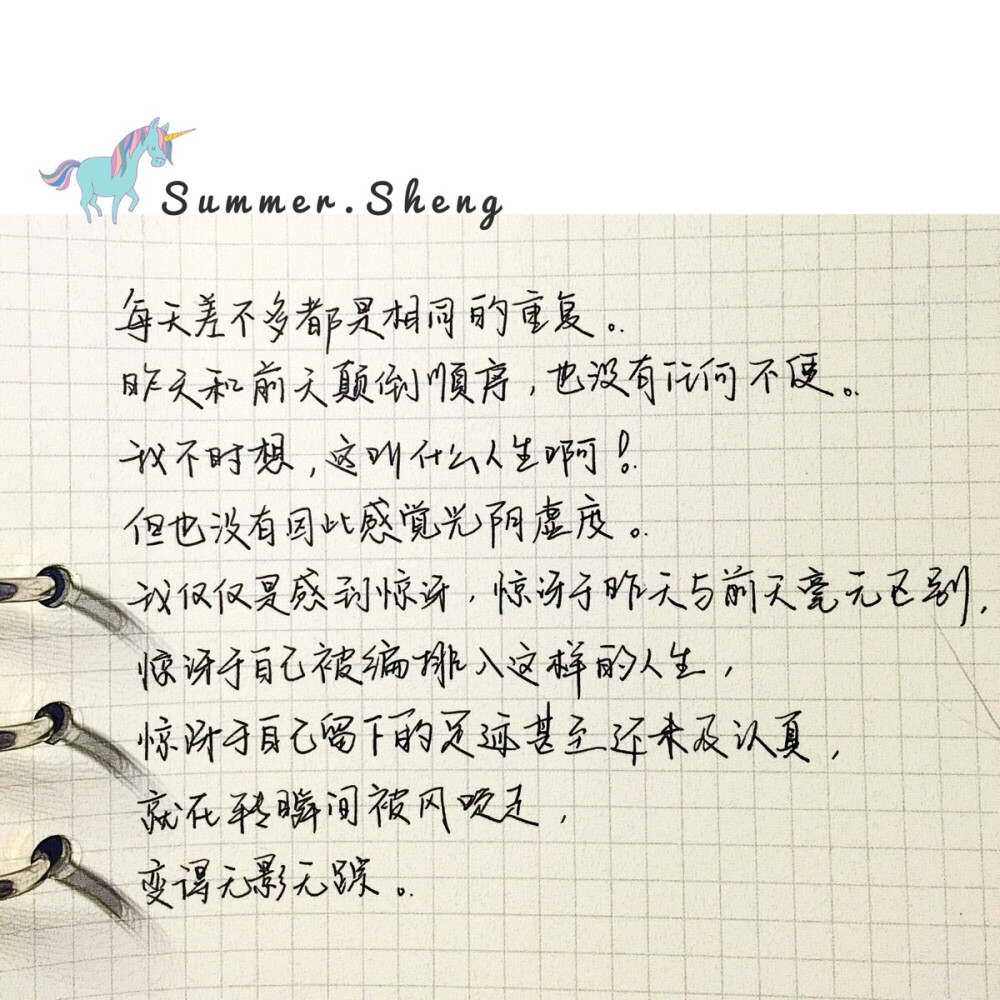 Summer.Sheng
每天差不多都是相同的重复。
昨天和前天颠倒順序，也没有任何不便。
我不时想，这叫什么人生啊！
但也没有因此感觉光阴虚度。
我仅仅是感到惊讶，惊讶于昨天与前天毫无区别，
惊讶于自己被编排入这样的人生，
惊讶于自己留下的足迹甚至还未及认真，
就在转瞬间被风吹走，
变得无影无踪。